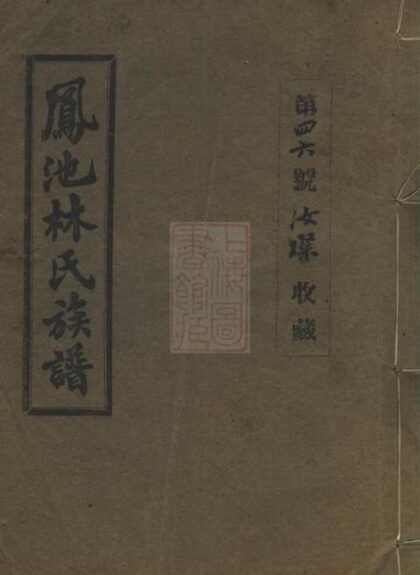 鳳池林氏族譜
第四六號 汝琛 收藏
上海圖
書館藏